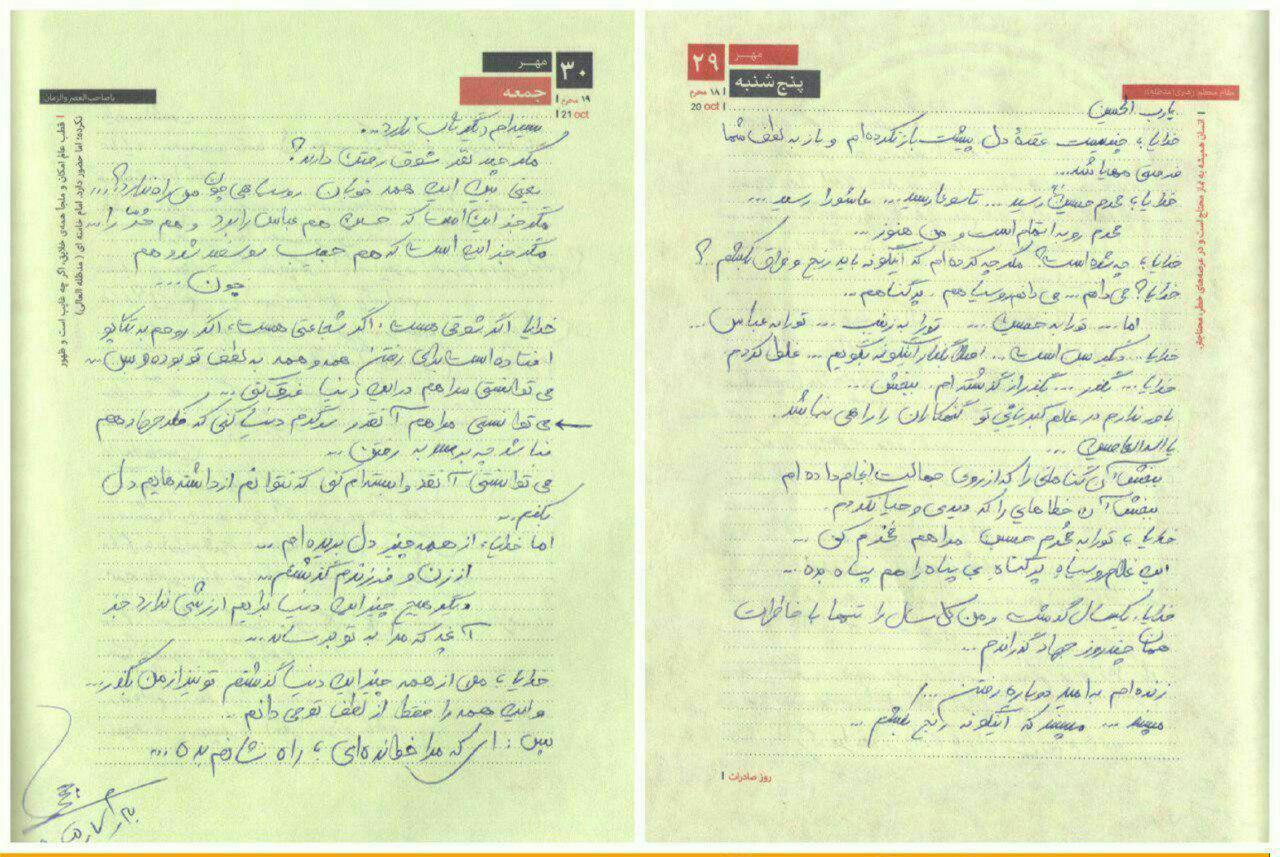 مهر
۲۹
پنج شنبه
۱۸ محرم
20 oct
مقام معظم رهبری (مدظله):
انسان همیشه به نماز محتاج است و در عرصه‌های خطر، محتاج‌تر
یا رب الحسین
خدایا، چندیست عقدهٔ دل پیشت باز نکرده‌ام و باز به لطف شما
فرصتی مهیا شد...
خدایا، محرم حسین رسید ... تاسوعا رسید ... عاشورا رسید ...
محرم رو به اتمام است و من هنوز ...
خدایا، چه شده است؟ مگر چه کرده‌ام که اینگونه باید رنج و فراق بکشم ..؟
خدایا؟ می دانم ... می دانم روسیاهم . پرگناهم ...
اما ... تو را به حسین ... تو را به زینب ... تو را به عباس ...
خدایا ... دیگر بس است ... اصلا بگذار اینگونه بگویم ... غلط کردم
خدایا ... بگذر ... بگذر از گذشته ام . ببخش ...
باور ندارم در عالم کبریایی تو گنهکاران را راهی نباشد.
یا اله العاصین
ببخش آن گناهانی را که از روی جهالت انجام داده ام
ببخش آن خطاهایی را که دیدی و حیا نکردم
خدایا، تو را به محرم حسین مرا هم محرم کن ...
این غلام روسیاه پرگناه بی پناه را هم پناه بده ...
خدایا، یکسال گذشت و من کل سال را تنها با خاطرات
همان چند روز جهاد گذراندم ...
زنده ام به امید دوباره رفتن ...
مپسند ... مپسند که اینگونه رنج بکشم ...
روز صادرات
مهر
۳۰
جمعه
۱۹ محرم
21 oct
یا صاحب العصر والزمان
قطب عالم امکان و ملجا همه‌ی خلایق، اگر چه غایب است و ظهور
نکرده؛ اما حضور دارد. امام خامنه ای (مدظله العالی)
سینه ام دیگر تاب ندارد ...
مگر چند نفر شوق رفتن دارند؟
یعنی بین این همه خوبان روسیاهی چون من راه ندارد؟ ...
مگر جز این است که حسین هم عباس را برد و هم حُر را ...
مگر جز این است که هم حبیب رو سفید شد و هم
جون ...
خدایا اگر شوقی هست، اگر شجاعتی هست، اگر روحم به تکاپو
افتاده است برای رفتن همه و همه به لطف تو بوده و بس ...
می توانستی مرا هم در این دنیا غرق کنی ...
می توانستی مرا هم آنقدر سرگرم دنیا کنی که فکر جهاد هم
فنا شد چه برسد به رفتن ...
می توانستی آنقدر وابسته ام کنی که نتوانم از داشته هایم دل
بکنم ...
اما خدایا، از همه چیز دل بریده ام ...
از زن و فرزندم گذشتم ...
دیگر هیچ چیز این دنیا برایم ارزشی ندارد جز
آنچه که مرا به تو برساند ...
خدایا، من از همه چیز این دنیا گذشتم تو نیز از من بگذر ...
و این همه را فقط از لطف تو می دانم ...
پس: ای که مرا خوانده‌ای، راه نشانم بده ...